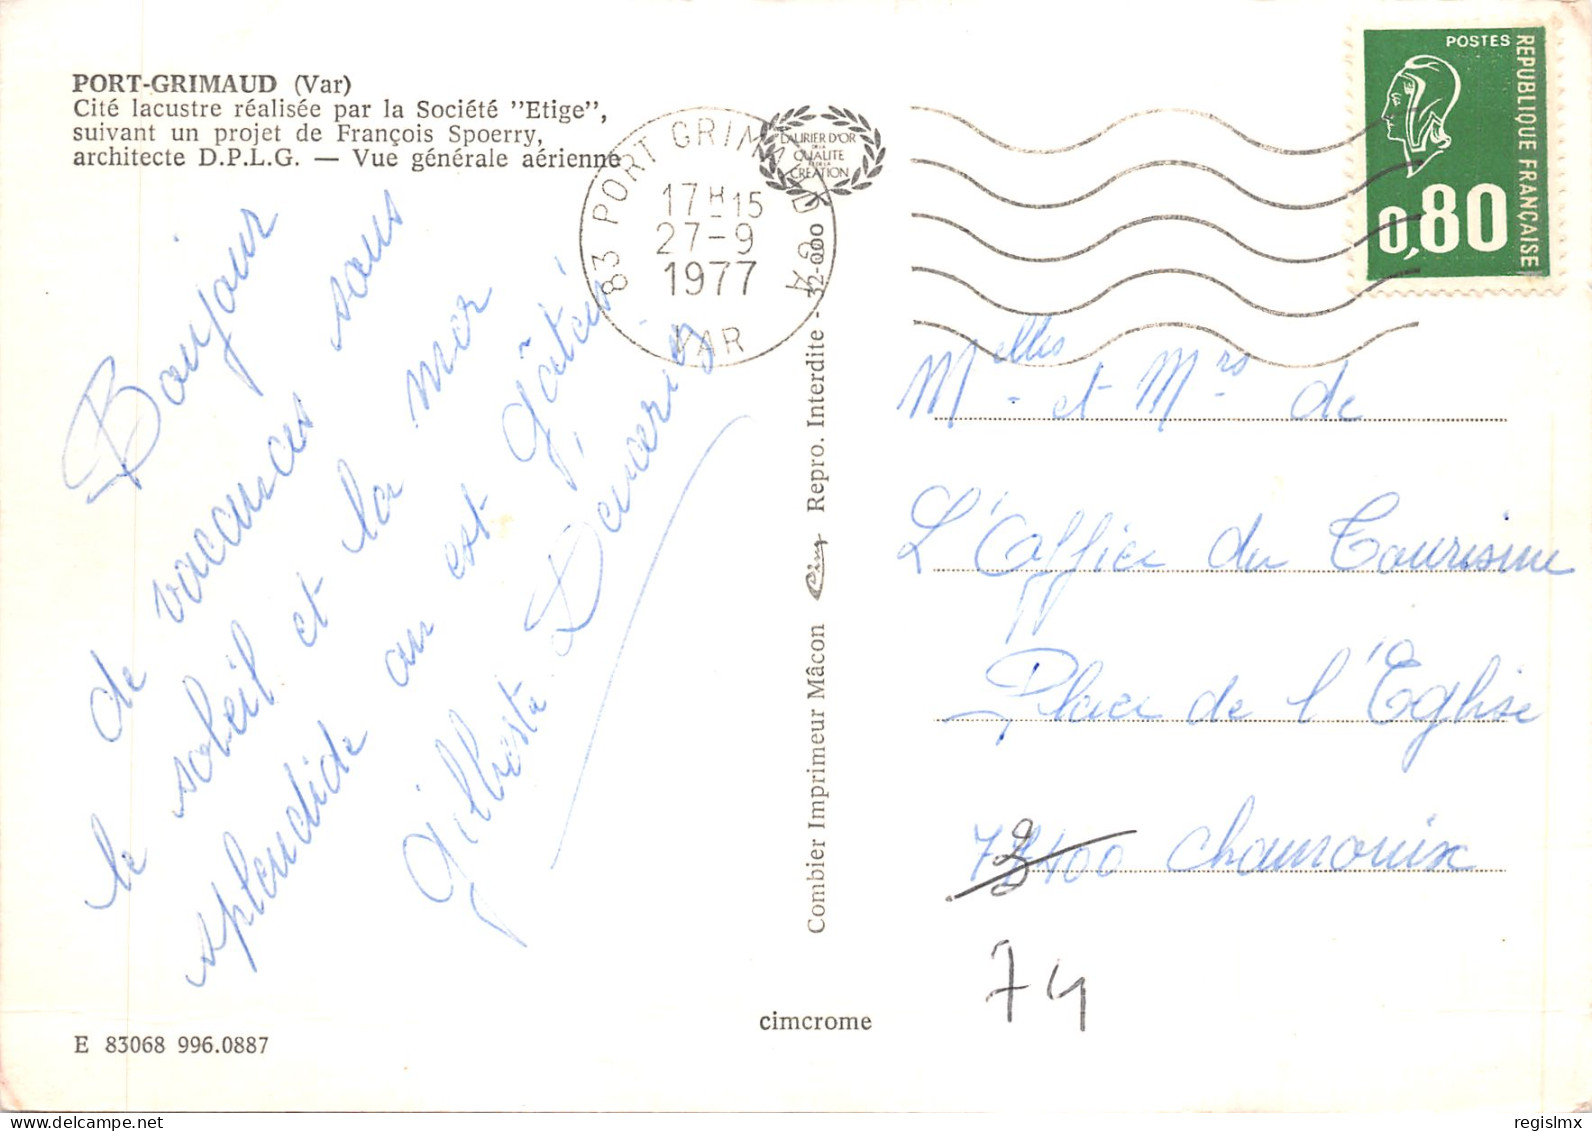 PORT-GRIMAUD (Var)
Cité lacustre réalisée par la Société "Etige",
suivant un projet de François Spoerry,
architecte D.P.L.G. — Vue générale aérienne
Bonjour
de vacances sous
le soleil et la mer
splendide on est gâtés
Gilberte
E 83068 996.0887
83 PORT GRIMAUD A2
17H15
27-9
1977
VAR
LAURIER D'OR
DE LA
QUALITE
ET DE LA
CREATION
Combier Imprimeur Mâcon Cim Repro. Interdite - 32-000
cimcrome
POSTES
REPUBLIQUE FRANÇAISE
0,80
Melles et Mrs de
L'Office du Tourisme
Place de l'Eglise
400 Chamonix
74
regislmx